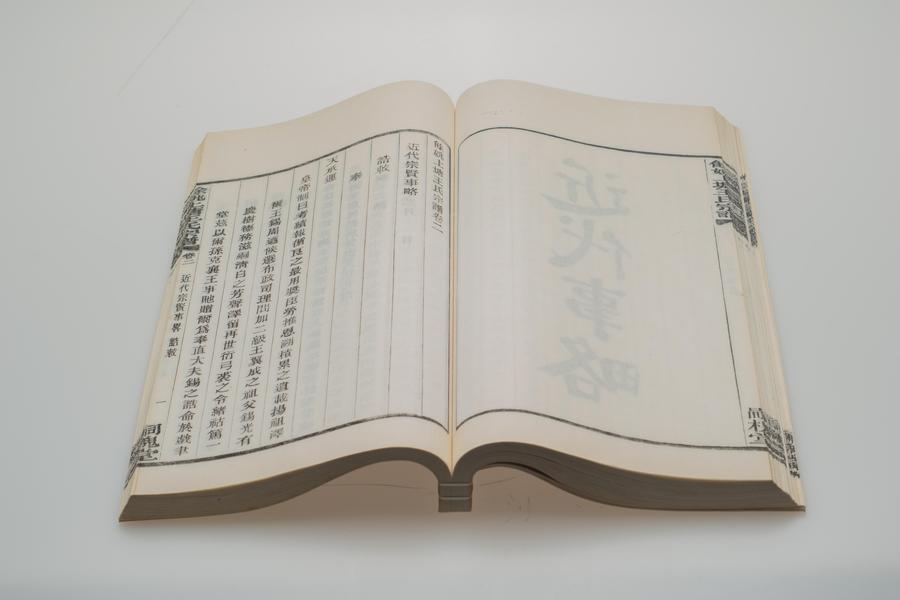 近代事略
餘姚上塘王氏宗譜卷二
近代宗賢事略
誥敕
奉
天承運
皇帝制曰考績報循良之最用奬臣勞推恩溯積累之遺載揚祖澤
爾王錫周迺候選布政司理問加二級王翼成之祖父錫光有
慶樹德務滋嗣清白之芳聲澤留再世衍弓裘之令緒祜篤一
堂茲以爾孫克襄王事貤贈爾爲奉直大夫錫之誥命於戲聿
餘姚上塘王氏宗譜
卷二
近代宗賢事略
誥敕
一